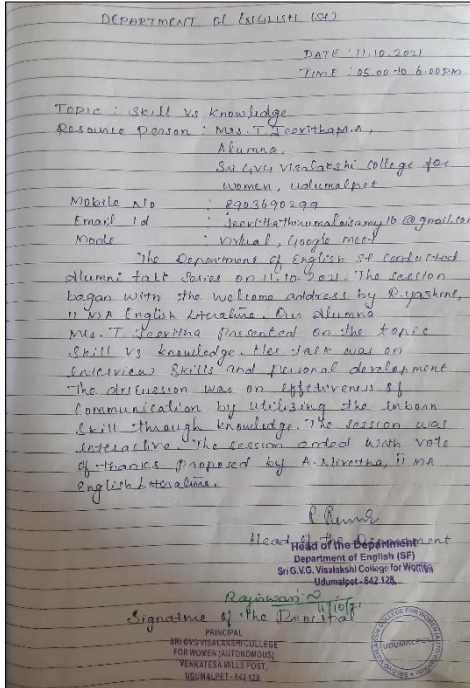 DEPARTMENT OF ENGLISH (SF)
DATE : 11.10.2021
TIME : 05.00 to 6.00PM
Topic : Skill vs Knowledge
Resource Person : Mrs. T. Jeevitha M.A,
Alumna,
Sri GVG Visalakshi College for
Women, Udumalpet
Mobile No : 8903690299
Email Id : jeevithathirumalaisamy16@gmail.com
Mode : Virtual, Google Meet
The Department of English SF conducted
Alumni talk Series on 11.10.2021. The session
began with the welcome address by
II MA English Literature. Our Alumna
Mrs. T. Jeevitha presented on the topic
Skill vs Knowledge. Her talk was on
interview skills and personal development
The discussion was on effectiveness of
Communication by utilizing the inborn
Skill through knowledge. The session was
interactive. The session ended with vote
of thanks proposed by A. Nivetha, II MA
English Literature.
Head of the Department
Head of the Department
Department of English (SF)
Sri G.V.G. Visalakshi College for Women
Udumalpet - 642 128.
11/10/21
Signature of the Principal
PRINCIPAL
SRI GVG VISALAKSHI COLLEGE
FOR WOMEN (AUTONOMOUS)
VENKATESA MILLS POST,
UDUMALPET - 642 128
UDUMALPET